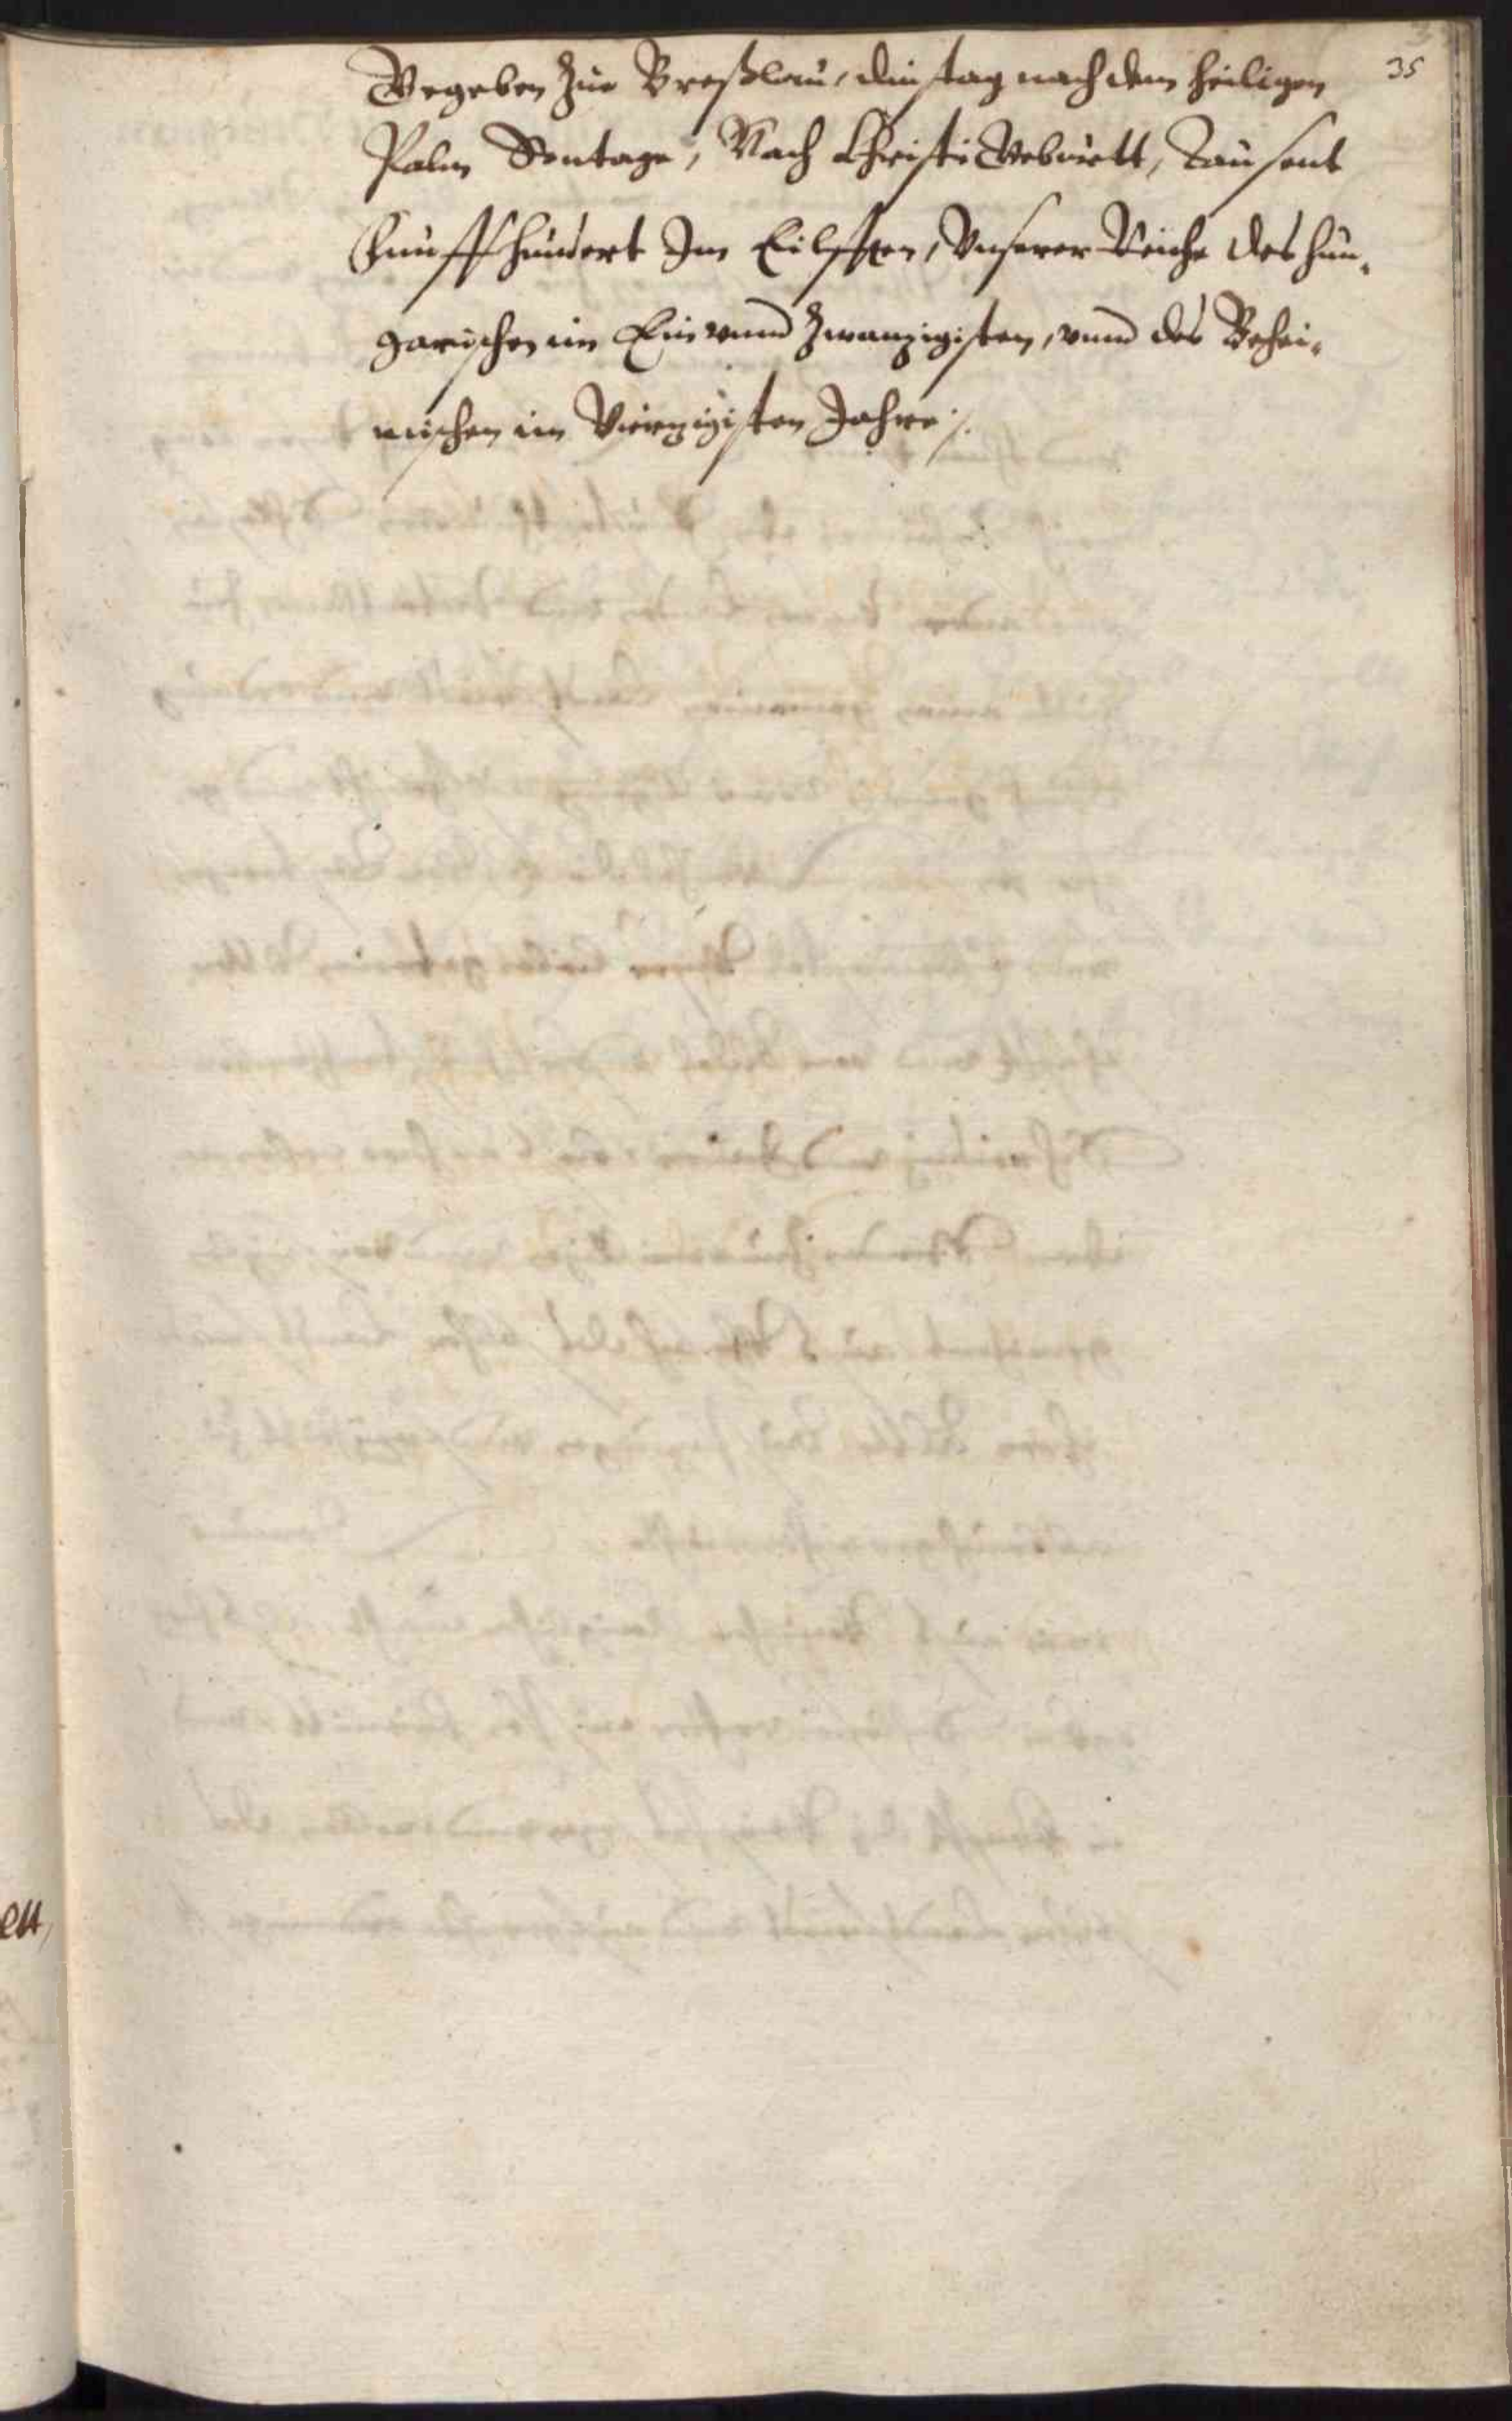 35
Gegeben zue Breßlau, dinstag nach dem heiligen
Palm Sontage, Nach Christi Geburtt, Tausent
Funffhundert Im Eilfften, Vnserer Reiche des hun-
garischen im Ein vnnd zwanzigisten, vnnd des Behei-
mischen im Viertzigisten Jahre /.
en,